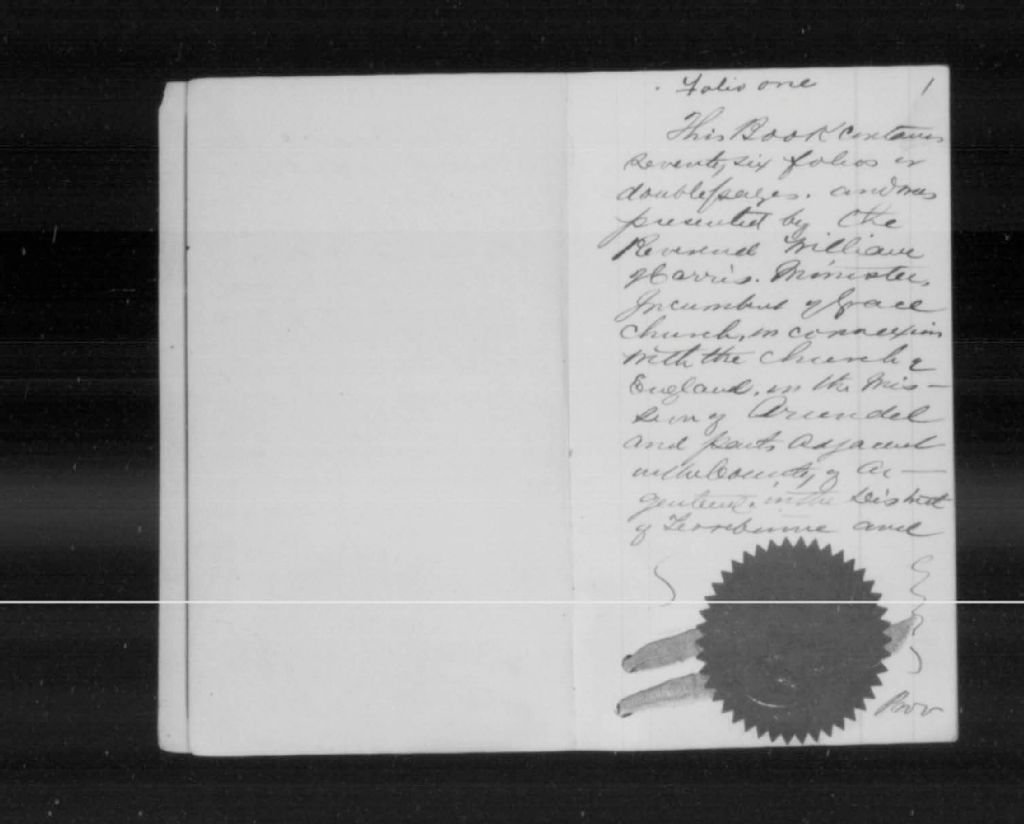 Folio one 1
This Book contains
seventy six folios or
double pages. and was
presented by the
Reverend William
Harris. Minister,
Incumbent of Grace
Church, in connexion
with the Church of
England, in the Mis-
sion of Arundel
and parts adjacent
in the County of Ar-
genteuil, in the District
of Terrebonne and
Prov